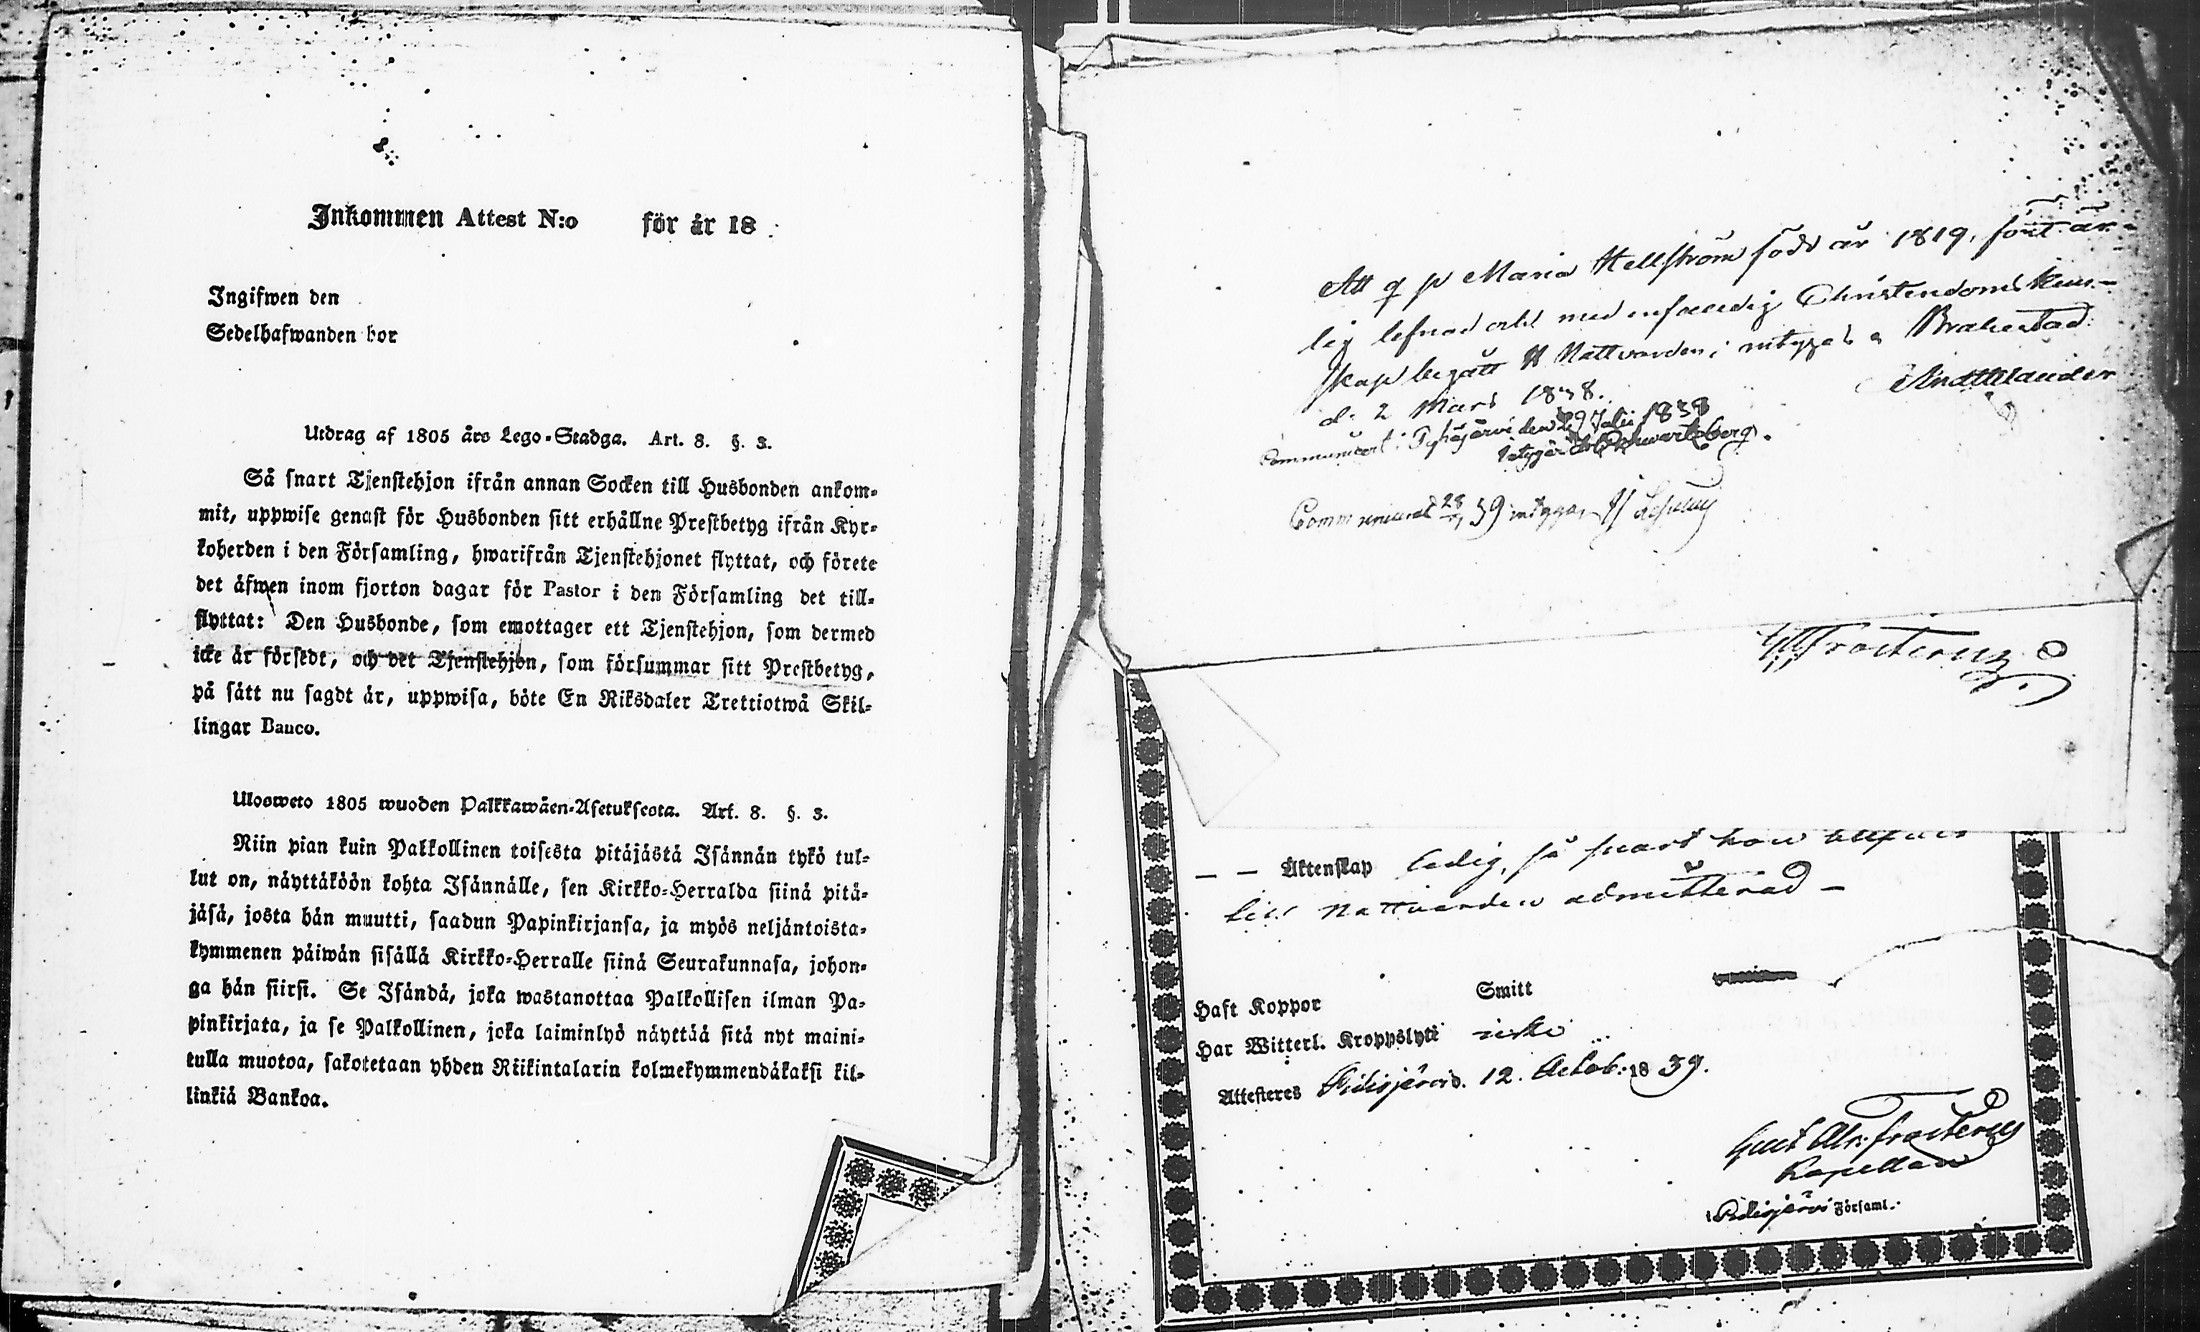 Inkommen Attest N:o för år 18
Ingifwen den
Sedelhafwanden bor
Utdrag af 1805 års Lego-Stadga. Art. 8. §. 3.
Så snart Tjenstehjon ifrån annan Socken till Husbonden ankom-
mit, uppwise genast för Husbonden sitt erhållne Prestbetyg ifrån Kyr-
koherden i den Församling, hwarifrån Tjenstehjonet flyttat, och förete
det äfwen inom fjorton dagar för Pastor i den Församling det till-
flyttat: Den Husbonde, som emottager ett Tjenstehjon, som dermed
icke är försedt, och det Tjenstehjon, som försummar sitt Prestbetyg,
på sätt nu sagdt är, uppwisa, böte En Riksdaler Trettiotwå Skil-
lingar Banco.
Ulosweto 1805 wuoden Palkkawäen-Asetuksesta. Art. 8. §. 3.
Niin pian kuin Palkollinen toisesta pitäjästä Isännän tykö tul-
lut on, näyttäköön kohta Isännälle, sen Kirkko-Herralda siinä pitä-
jäsä, josta hän muutti, saadun Papinkirjansa, ja myös neljäntoista-
kymmenen päiwän sisällä Kirkko-Herralle siinä Seurakunnasa, johon-
ga hän siirsi. Se Isändä, joka wastanottaa Palkollisen ilman Pa-
pinkirjata, ja se Palkollinen, joka laiminlyö näyttää sitä nyt maini-
tulla muotoa, sakotetaan yhden Riikintalarin kolmekymmendäkaksi kil-
linkiä Bankoa.
Att q p Maria Hellström född år 1819, fört är-
lig lefnad och med enfaldig Christendoms kun-
skap begått H Nattvarden; intygas a Brahestad
d. 2 Mars 1838.
Communicerat i Pyhäjärvi den 29 Julii 1838
intygar Schwartzberg.
Communicerat 39 intygar
Frosterus
Äktenskap ledig, så snart hon
till Nattvarden admitterad –
Haft Koppor Smitt
Har Witterl. Kroppslyte icke
Attesteres Pidisjärvi d. 12. Octob. 1839.
Gust Abr: Frosterus
Kapellan
Pidisjärvi Församl.